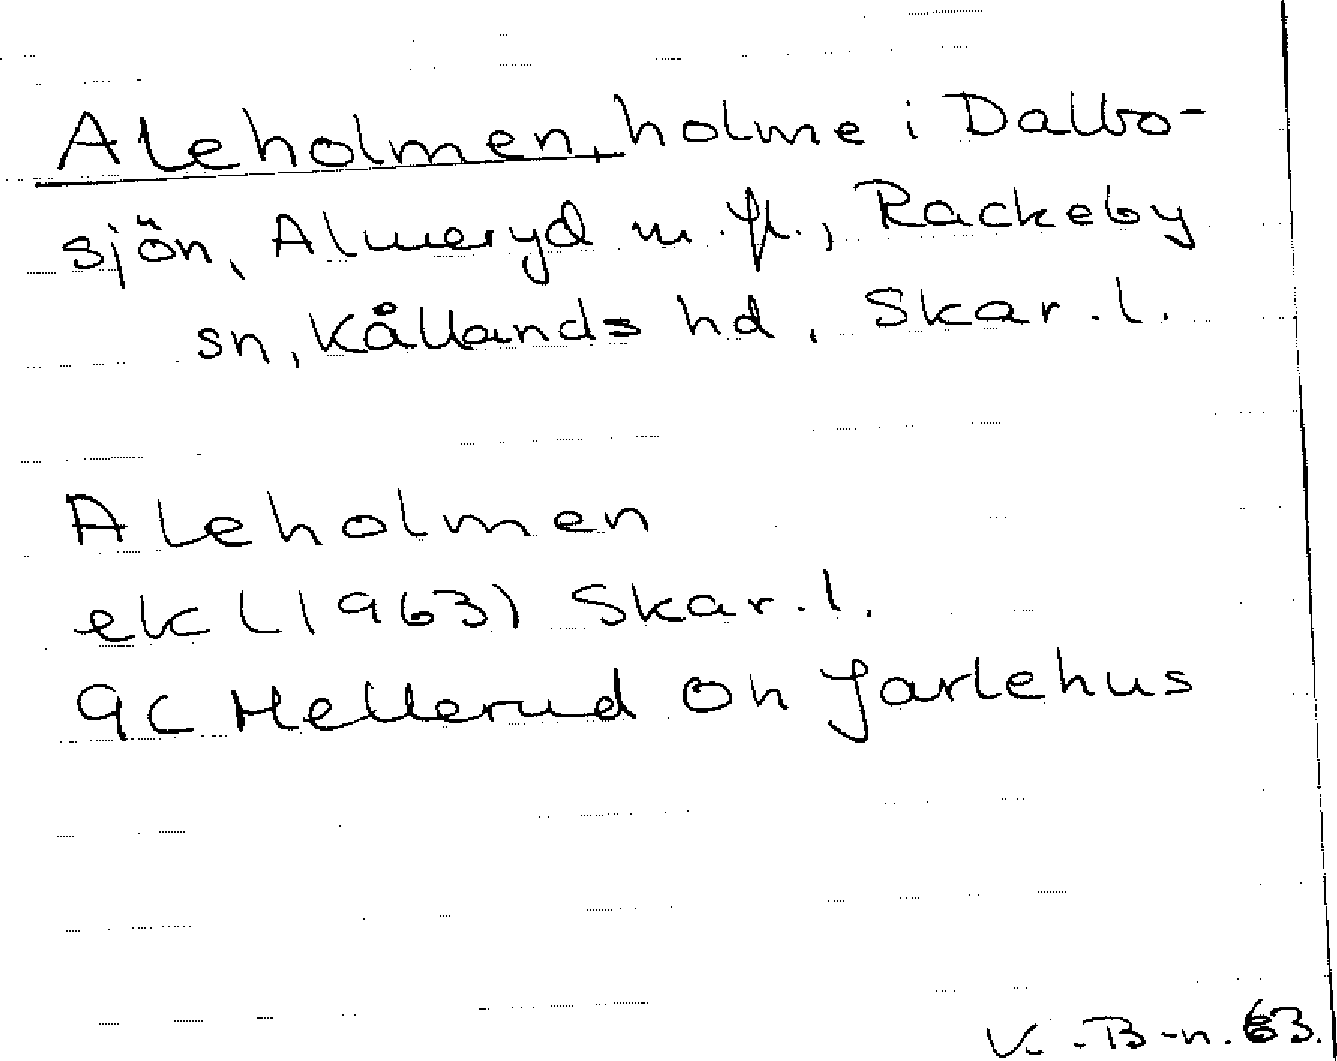 Aleholmen, holme i Dalbo-
sjön, Almeryd m.fl., Rackeby
sn, Kållands hd, Skar.l.
Aleholmen
ek (1963) Skar.l.
9C Mellerud Oh Jarlehus
V.-B-n. 63.